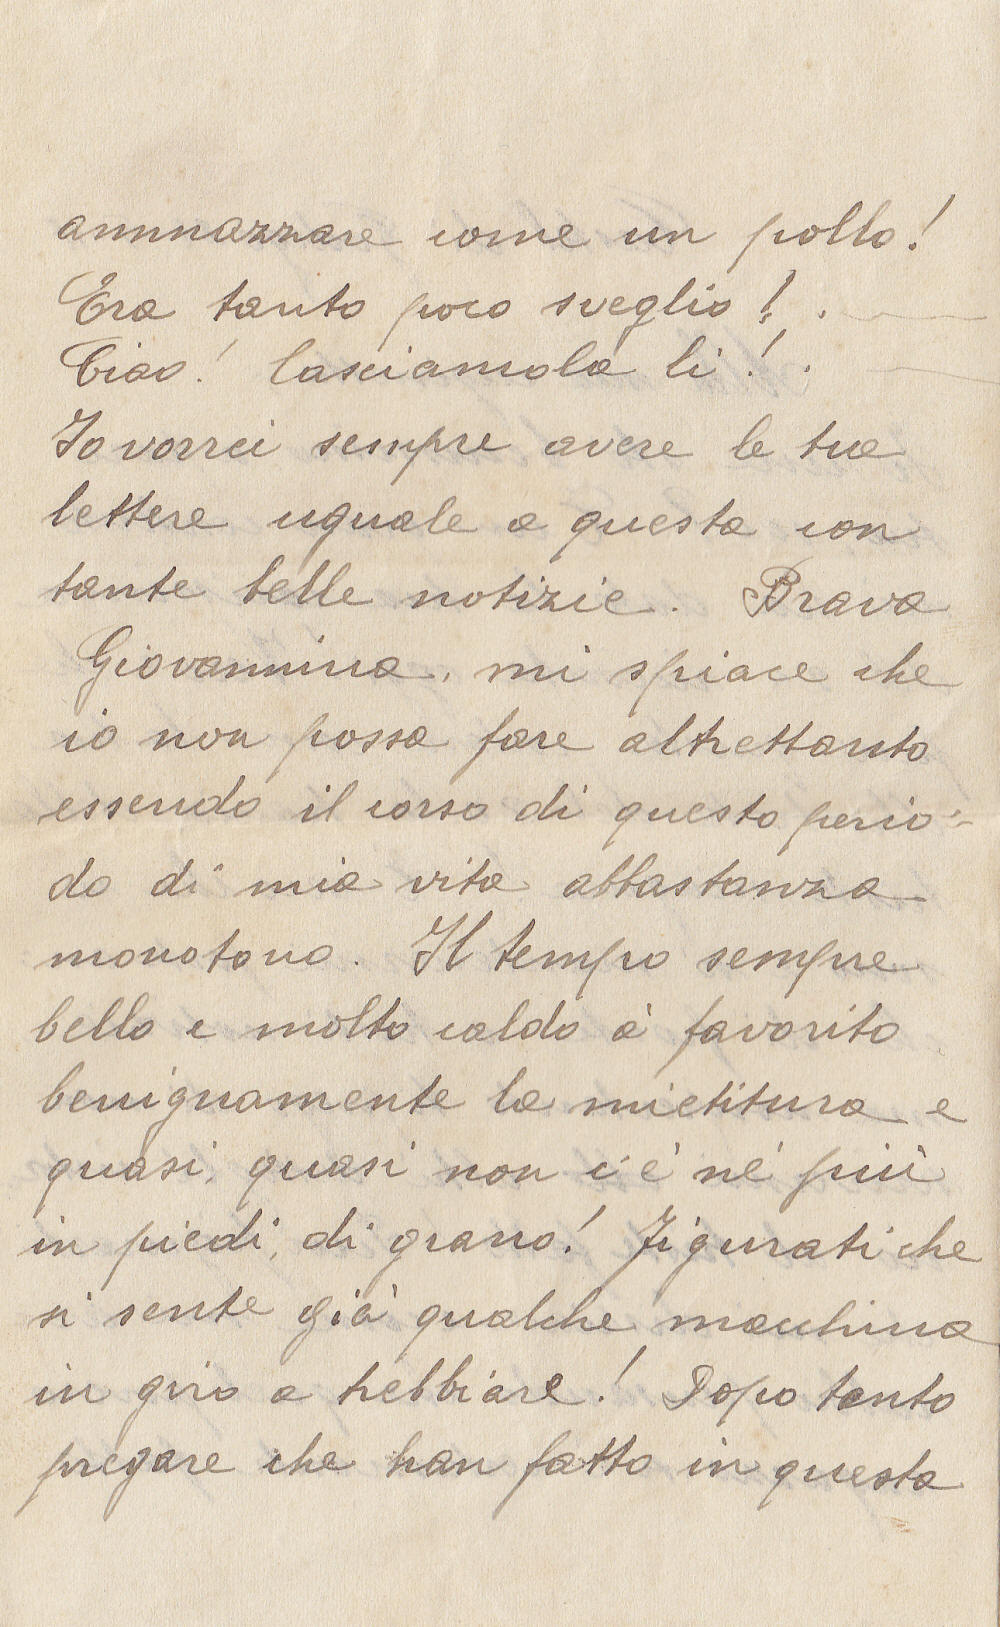 ammazzare come un pollo!
Era tanto poco sveglio! .
Ciao! lasciamola li! .
Io vorrei sempre avere le tue
lettere uguale a questa con
tante belle notizie. Brava
Giovannina, mi spiace che
io non possa fare altrettanto
essendo il corso di questo perio-
do di mia vita abbastanza
monotono. Il tempo sempre
bello e molto caldo à favorito
benignamente la mietitura e
quasi, quasi non c'è nè più
in piedi, di grano! Figurati che
si sente già qualche macchina
in giro a trebbiare! Dopo tanto
pregare che han fatto in questa